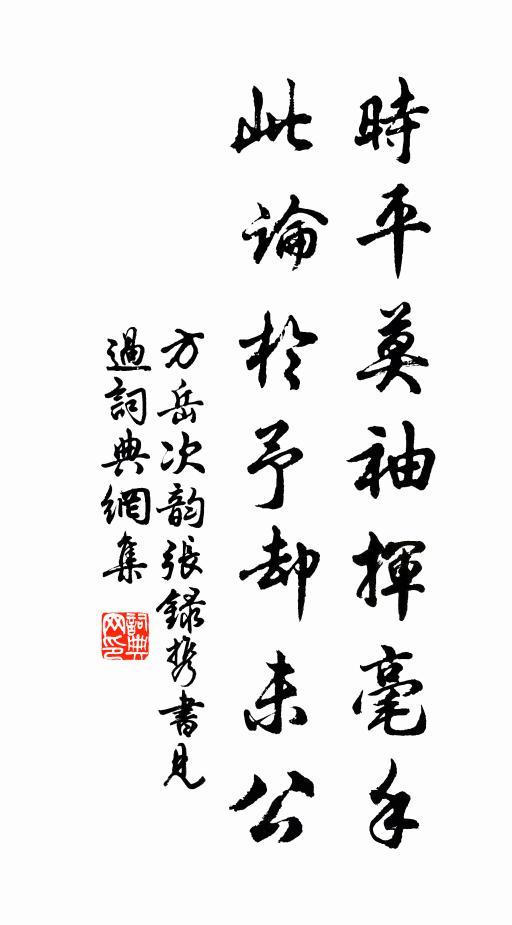 時平莫袖揮毫手
此論於予却未公
方岳次韵張錄攜書見
過詞典網集
詞典
网印